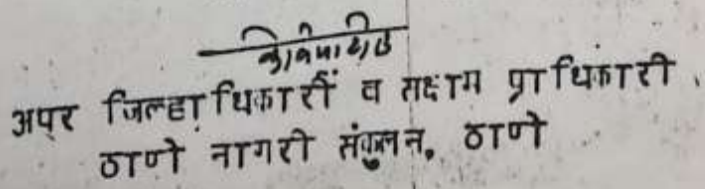 अपर जिल्हाधिकारीं व सक्षाम प्राधिकारी.
ठाणे नागरी संकुलन, ठाणे